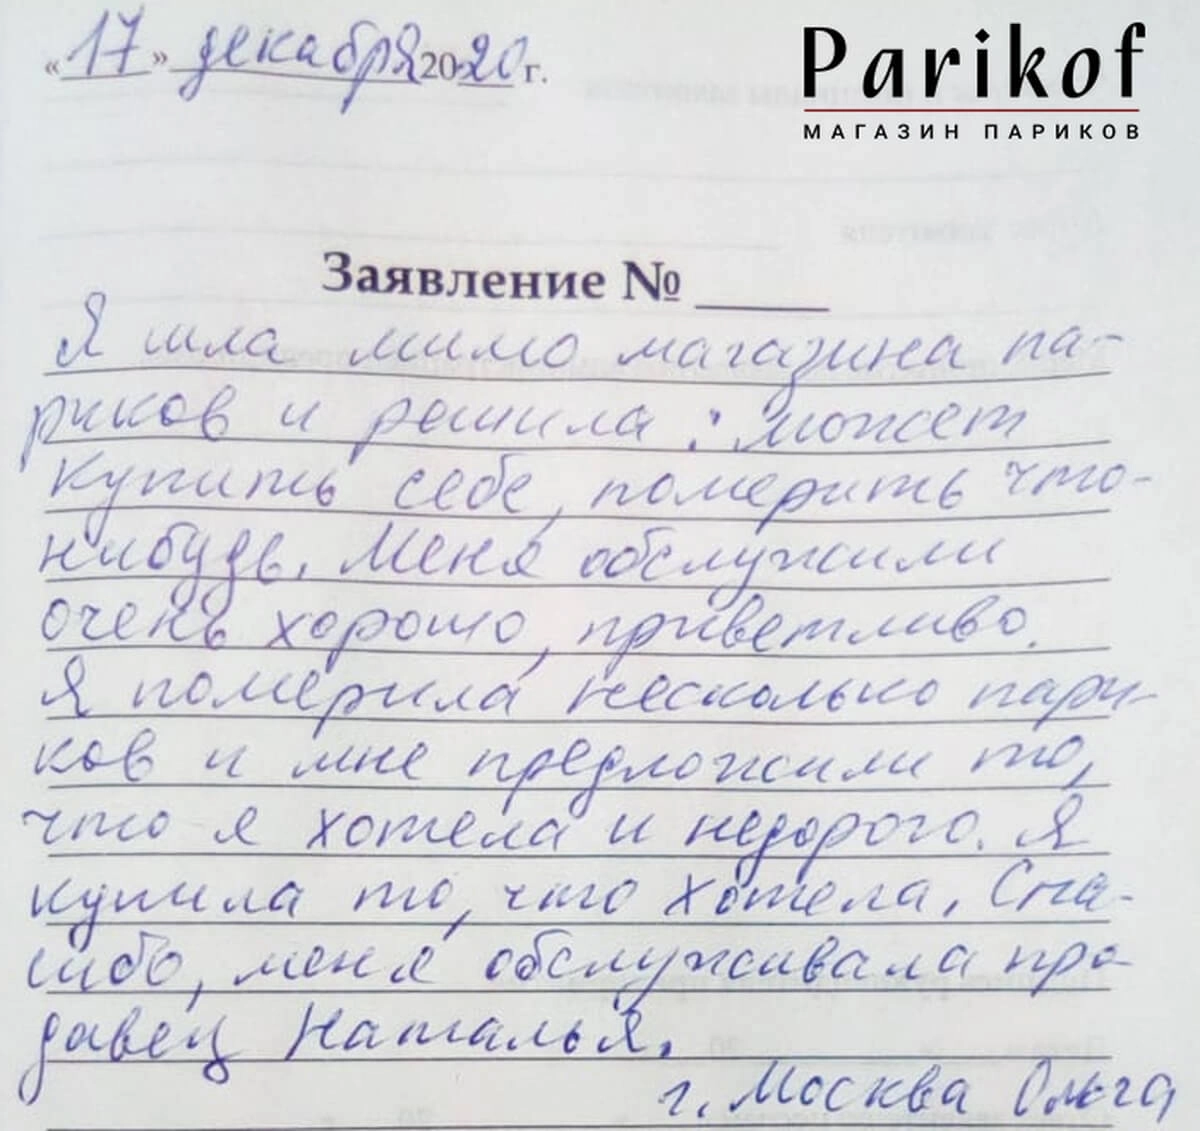 «17» декабря 2020 г.
Parikof
МАГАЗИН ПАРИКОВ
Заявление №
Я шла мимо магазина па-
риков и решила: может
купить себе, померить что-
нибудь. Меня обслужили
очень хорошо, приветливо.
Я померила несколько пари-
ков и мне предложили то,
что я хотела и недорого. Я
купила то, что хотела. Спа-
сибо, меня обслуживала про-
давец Наталья.
г. Москва Ольга